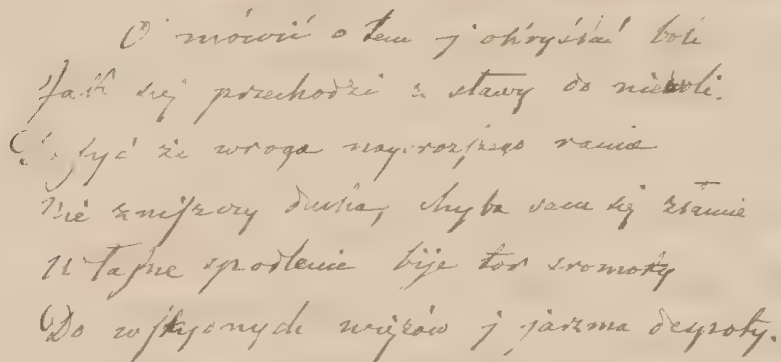 O mówić o tem j okryślać boli
Jak się przechodzi z sławy do niewoli.
być że wroga naysrozszego ramie
Nie zniszczy ducha, chyba sam się złamie
Własne spodlenie bije tor sromoty
Do wjęzyonych więzów j jarzma despoty.